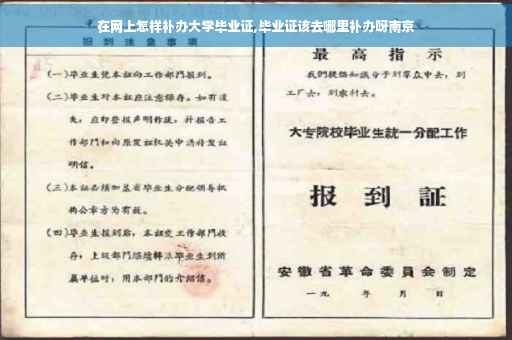 在网上怎样补办大学毕业证,毕业证该去哪里补办呀南京
报到注意事项
(一)毕业生凭本证向工作部门报到。
(二)毕业生对本证应注意保存。如有遗
失,应即登报声明作废,并报告工
作部门和向原发证机关申请补发证
明信。
(三)本证必须加盖省毕业生分配领导机
构公章方为有效。
(四)毕业生报到后,本证交工作部门收
存;上级部门继续转派毕业生到所
属单位时,用本部门的介绍信。
最高指示
我们提倡知识分子到群众中去,到
工厂去,到农村去。
大专院校毕业生统一分配工作
报到证
安徽省革命委员会制定
一九 年 月 日